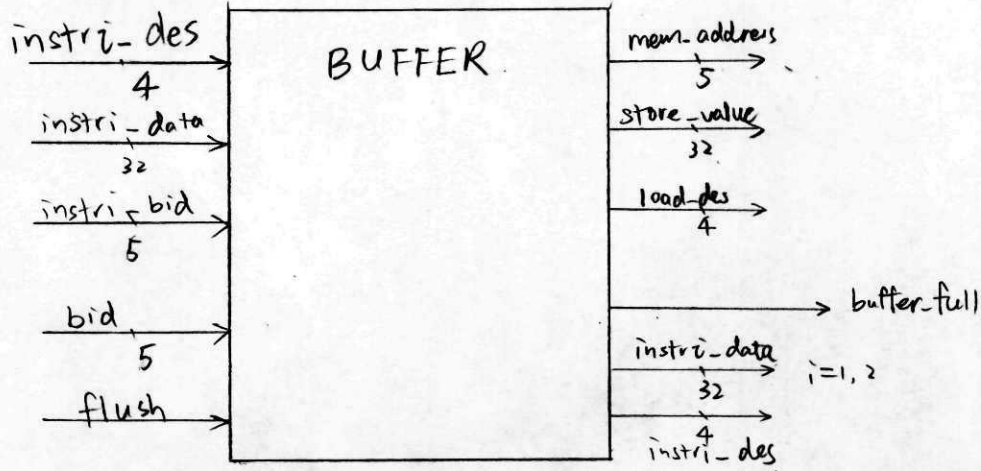 instri_des
4
instri_data
32
instri_bid
5
bid
5
flush
BUFFER
mem_address
5
store_value
32
load_des
4
buffer_full
instri_data
32
i=1,2
4
instri_des